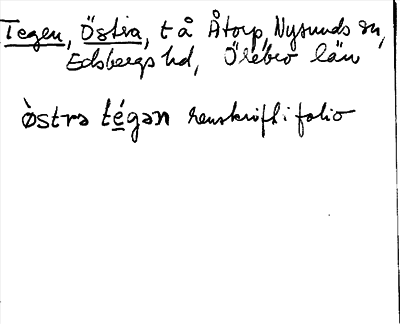 Tegen, Östra, t å Åtorp, Nysunds sn,
Edsbergs hd, Örebro län
òstra tégan renskrift i folio